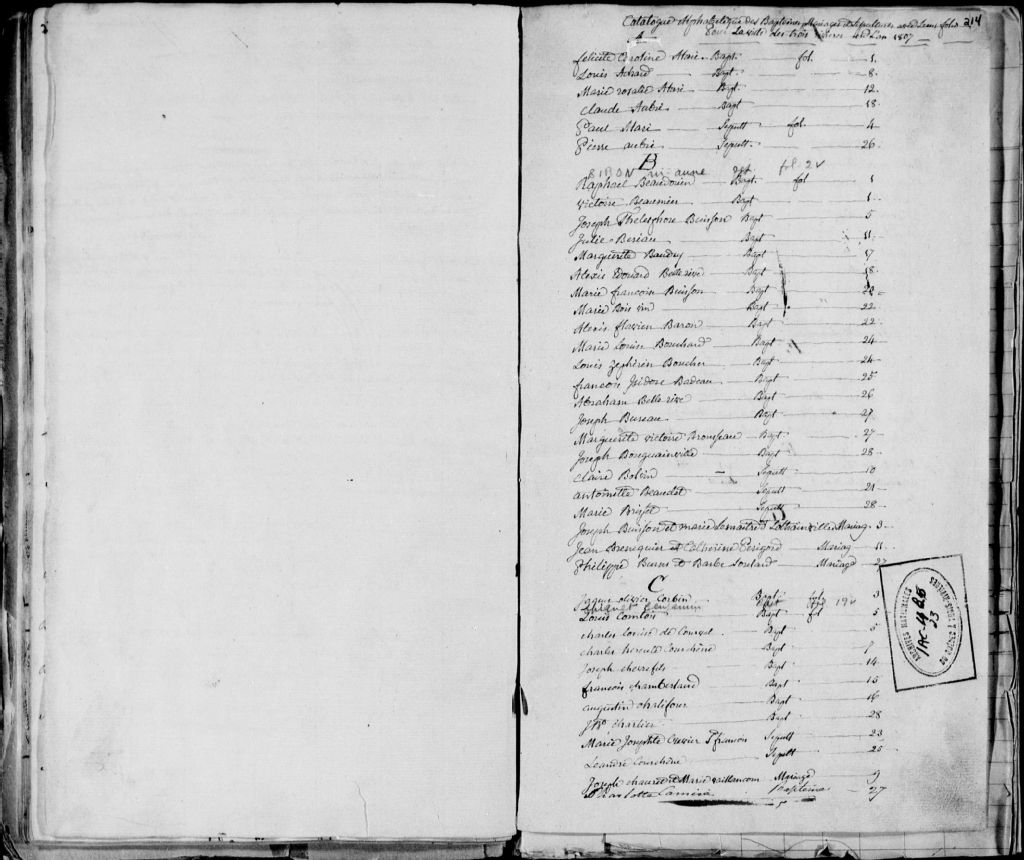 Catalogue Alphabetique des Baptemes Mariages et Sepultures avec Leurs folio 214
A pour La ville des trois Rivieres L'an 1807
felicité Caroline Alarie Bapt. fol. 1.
Louis Achard Bapt. 8.
Marie rosalie Alarie Bapt. 12
Claude Aubri Bapt 18
Paul Alari Sepult fol. 4
Pierre aubri Sepult. 26
B
BIRON m. anne fol. 2v
Raphael Beaudouin Bapt. fol 1
victoire Beaumier Bapt 1
Joseph Thelesphore Buisson Bapt 5
Julie Beriau Bapt 11
Marguerite Baudry Bapt 17
Alexis Edouard Belle rive Bapt 18
Marie francoise Buisson Bapt
Marie Boisvin Bapt 22
Alexis flavien Baron Bapt 22
Marie Louise Bouchard Bapt 24
Louis Zephirin Boucher Bapt 24
francois Isidore Badeau Bapt 25
Abraham Belle rive Bapt 26
Joseph Bureau Bapt 27
Marguerite victoire Brousseau Bapt 27
Joseph Bouguainville Bapt 28
Claire Boivin Sepult 10
antoinette Beaudet Sepult 21
Marie Brissot Sepult 28
Joseph Buisson et marie Lemaitre Lottinville Mariag. 3
Jean Brunequin et Catherine Perigord Mariag 11
Philippe Burns et Barbe Loutard Mariage
C
olivier Corbin Bapt fol 3
Benjamin 19v
Louis Comtois Bapt fol 5
charles Louise de Courval Bapt 5
charles hercule Courchêne Bapt
Joseph chevrefils Bapt 14
francois chamberland Bapt 15
augustin chalifour Bapt 16
J Bte chartier Bapt 28
Marie Josephte Crevier St francois Sepult 23
Leandre Courchêne Sepult 25
Joseph chauret et Marie vaillancour Mariage 9
Charlotte Camiré Bapteme 27
ARCHIVES NATIONALES
DU QUEBEC A TROIS-RIVIERES